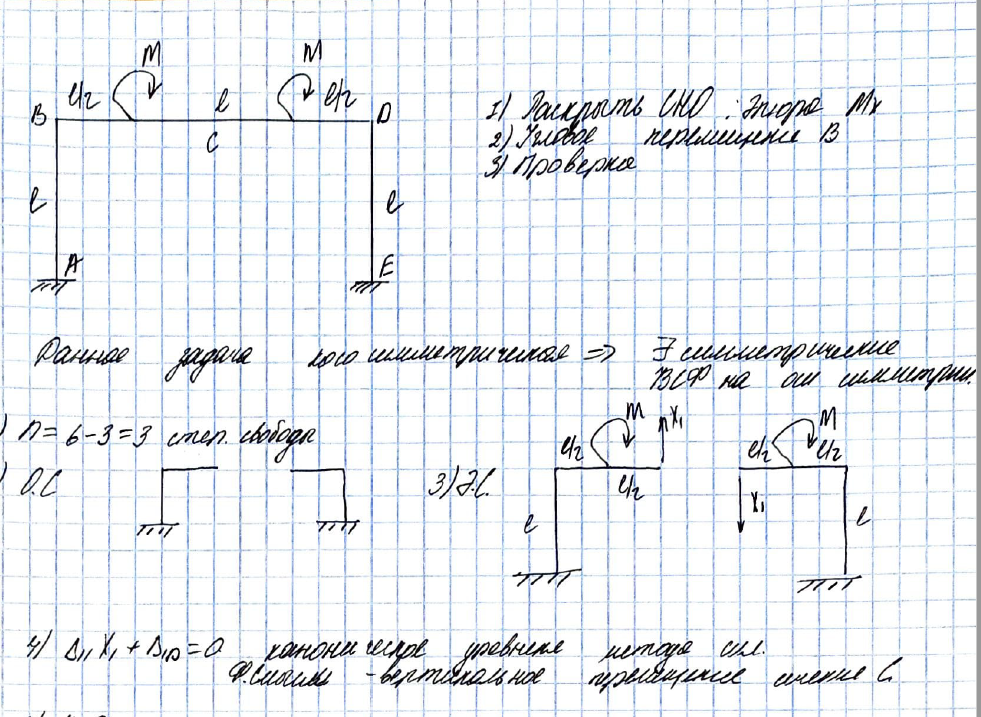 M M
l/2 l l/2
B D
C
l l
A E
1) Раскрыть СНО. Эпюра Mx
2) Угловое перемещение B
3) Проверка
Данная задача кососимметрическая => ∃ симметрические
ВСФ на оси симметрии.
) n = 6-3=3 степ. свободы
) О.С 3) Э.С.
M X₁ M
l/2 l/2 l/2 l/2
X₁
l l
4) Δ₁₁X₁ + Δ₁₀ = 0 каноническое уравнение метода сил.
Ф.смысл - вертикальное перемещение сечения C